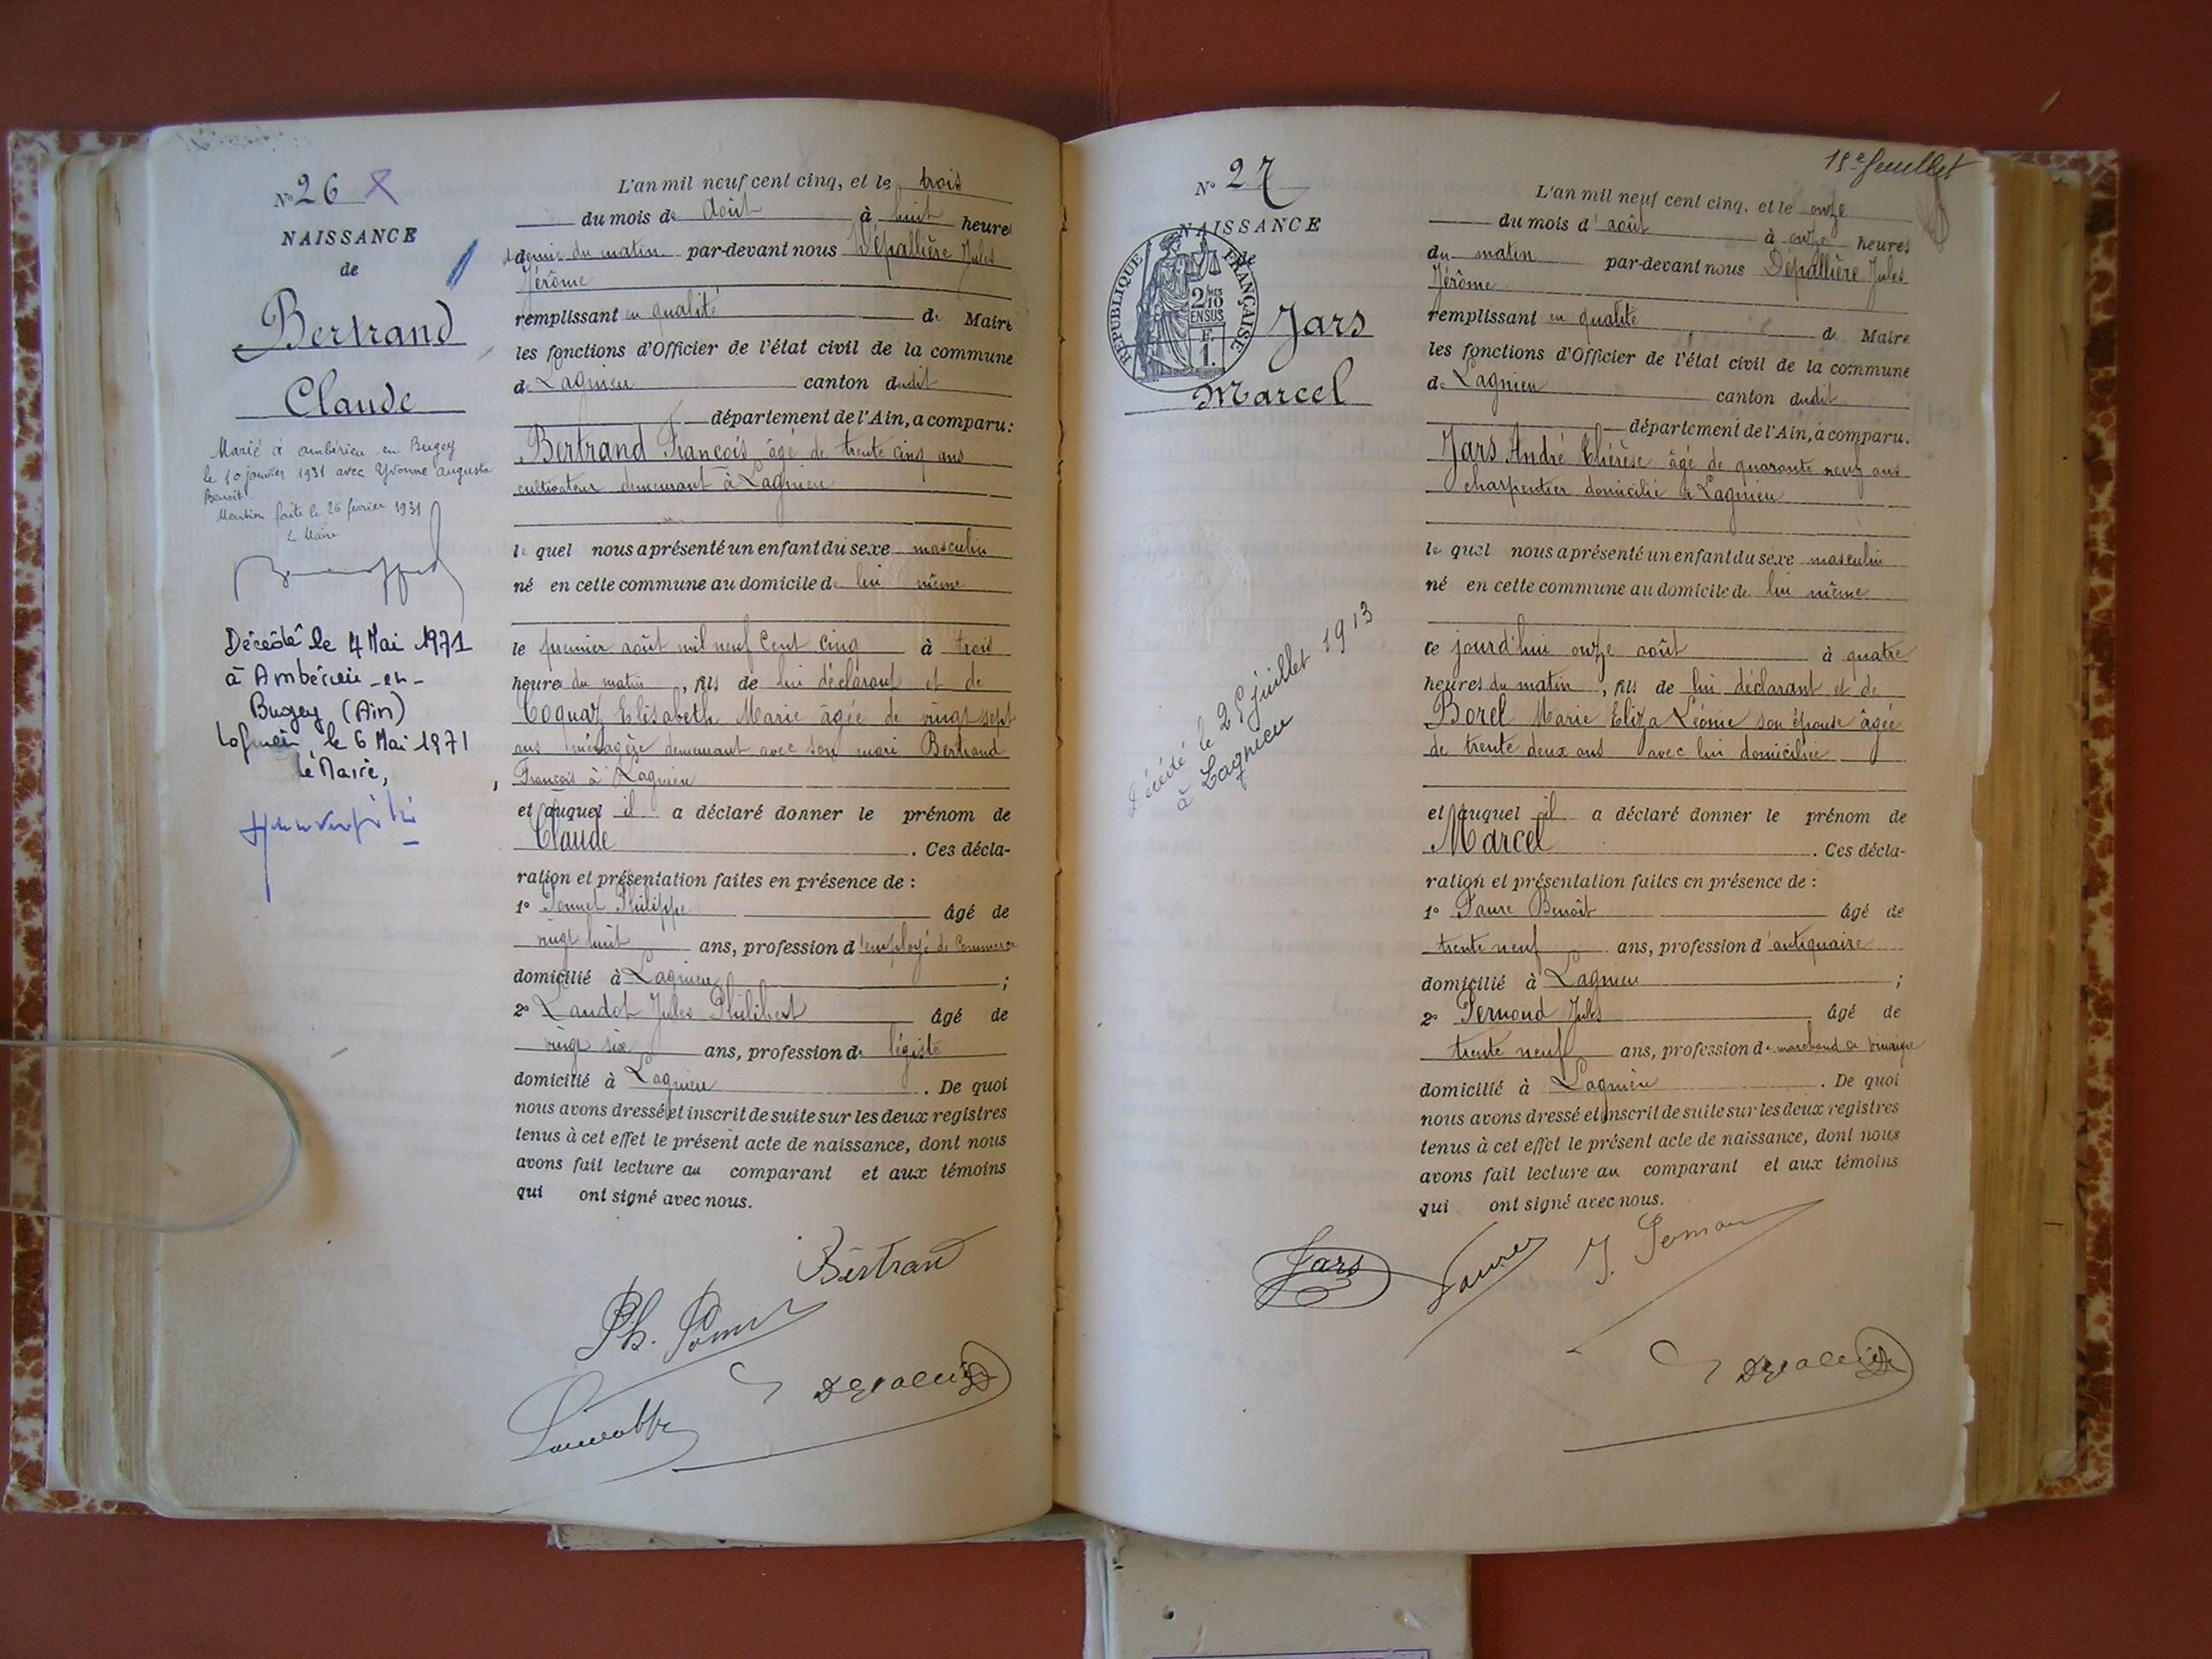 Nº 26
NAISSANCE
de
Bertrand
Claude
Marié à Ambérieu en Bugey
le 10 janvier 1931 avec Yvonne Augusta
Benoit
Mention faite le 26 février 1931
Le Maire
Décédé le 4 Mai 1971
à Ambérieu-en-
Bugey (Ain)
Lagnieu, le 6 Mai 1971
le Maire,
L'an mil neuf cent cinq, et le trois
du mois de Août à huit heures
et demie du matin par-devant nous Dépallière Jules
Jérôme
remplissant en qualité de Maire
les fonctions d'Officier de l'état civil de la commune
de Lagnieu canton dudit
département de l'Ain, a comparu:
Bertrand François âgé de trente cinq ans
cultivateur demeurant à Lagnieu
le quel nous a présenté un enfant du sexe masculin
né en cette commune au domicile de lui même
le premier août mil neuf cent cinq à trois
heures du matin, fils de lui déclarant et de
Coquaz Elisabeth Marie âgée de vingt sept
ans ménagère demeurant avec son mari Bertrand
François à Lagnieu
et auquel il a déclaré donner le prénom de
Claude. Ces décla-
ration et présentation faites en présence de :
1º Ponnet Philippe âgé de
vingt huit ans, profession d'employé de Commerce
domicilié à Lagnieu ;
2º Landot Jules Philibert âgé de
vingt six ans, profession de légiste
domicilié à Lagnieu. De quoi
nous avons dressé et inscrit de suite sur les deux registres
tenus à cet effet le présent acte de naissance, dont nous
avons fait lecture au comparant et aux témoins
qui ont signé avec nous.
Bertrand
Ph.
15e feuillet
Nº 27
NAISSANCE
de
RÉPUBLIQUE FRANÇAISE
2/10MES
EN SUS
F.
1.
Jars
Marcel
Décédé le 25 juillet 1913
à Lagnieu
L'an mil neuf cent cinq, et le onze
du mois d'août à onze heures
du matin par-devant nous Dépallière Jules
Jérôme
remplissant en qualité de Maire
les fonctions d'Officier de l'état civil de la commune
de Lagnieu canton dudit
département de l'Ain, a comparu.
Jars André Thérèse âgé de quarante neuf ans
charpentier domicilié à Lagnieu
le quel nous a présenté un enfant du sexe masculin
né en cette commune au domicile de lui même
ce jourd'hui onze août à quatre
heures du matin, fils de lui déclarant et de
Borel Marie Eliza Léonie son épouse âgée
de trente deux ans avec lui domiciliée
et auquel il a déclaré donner le prénom de
Marcel. Ces décla-
ration et présentation faites en présence de :
1º Faure Benoît âgé de
trente neuf ans, profession d'antiquaire
domicilié à Lagnieu ;
2º Pernoud Jules âgé de
trente neuf ans, profession de marchand de vinaigre
domicilié à Lagnieu. De quoi
nous avons dressé et inscrit de suite sur les deux registres
tenus à cet effet le présent acte de naissance, dont nous
avons fait lecture au comparant et aux témoins
qui ont signé avec nous.
Jars Faure J.